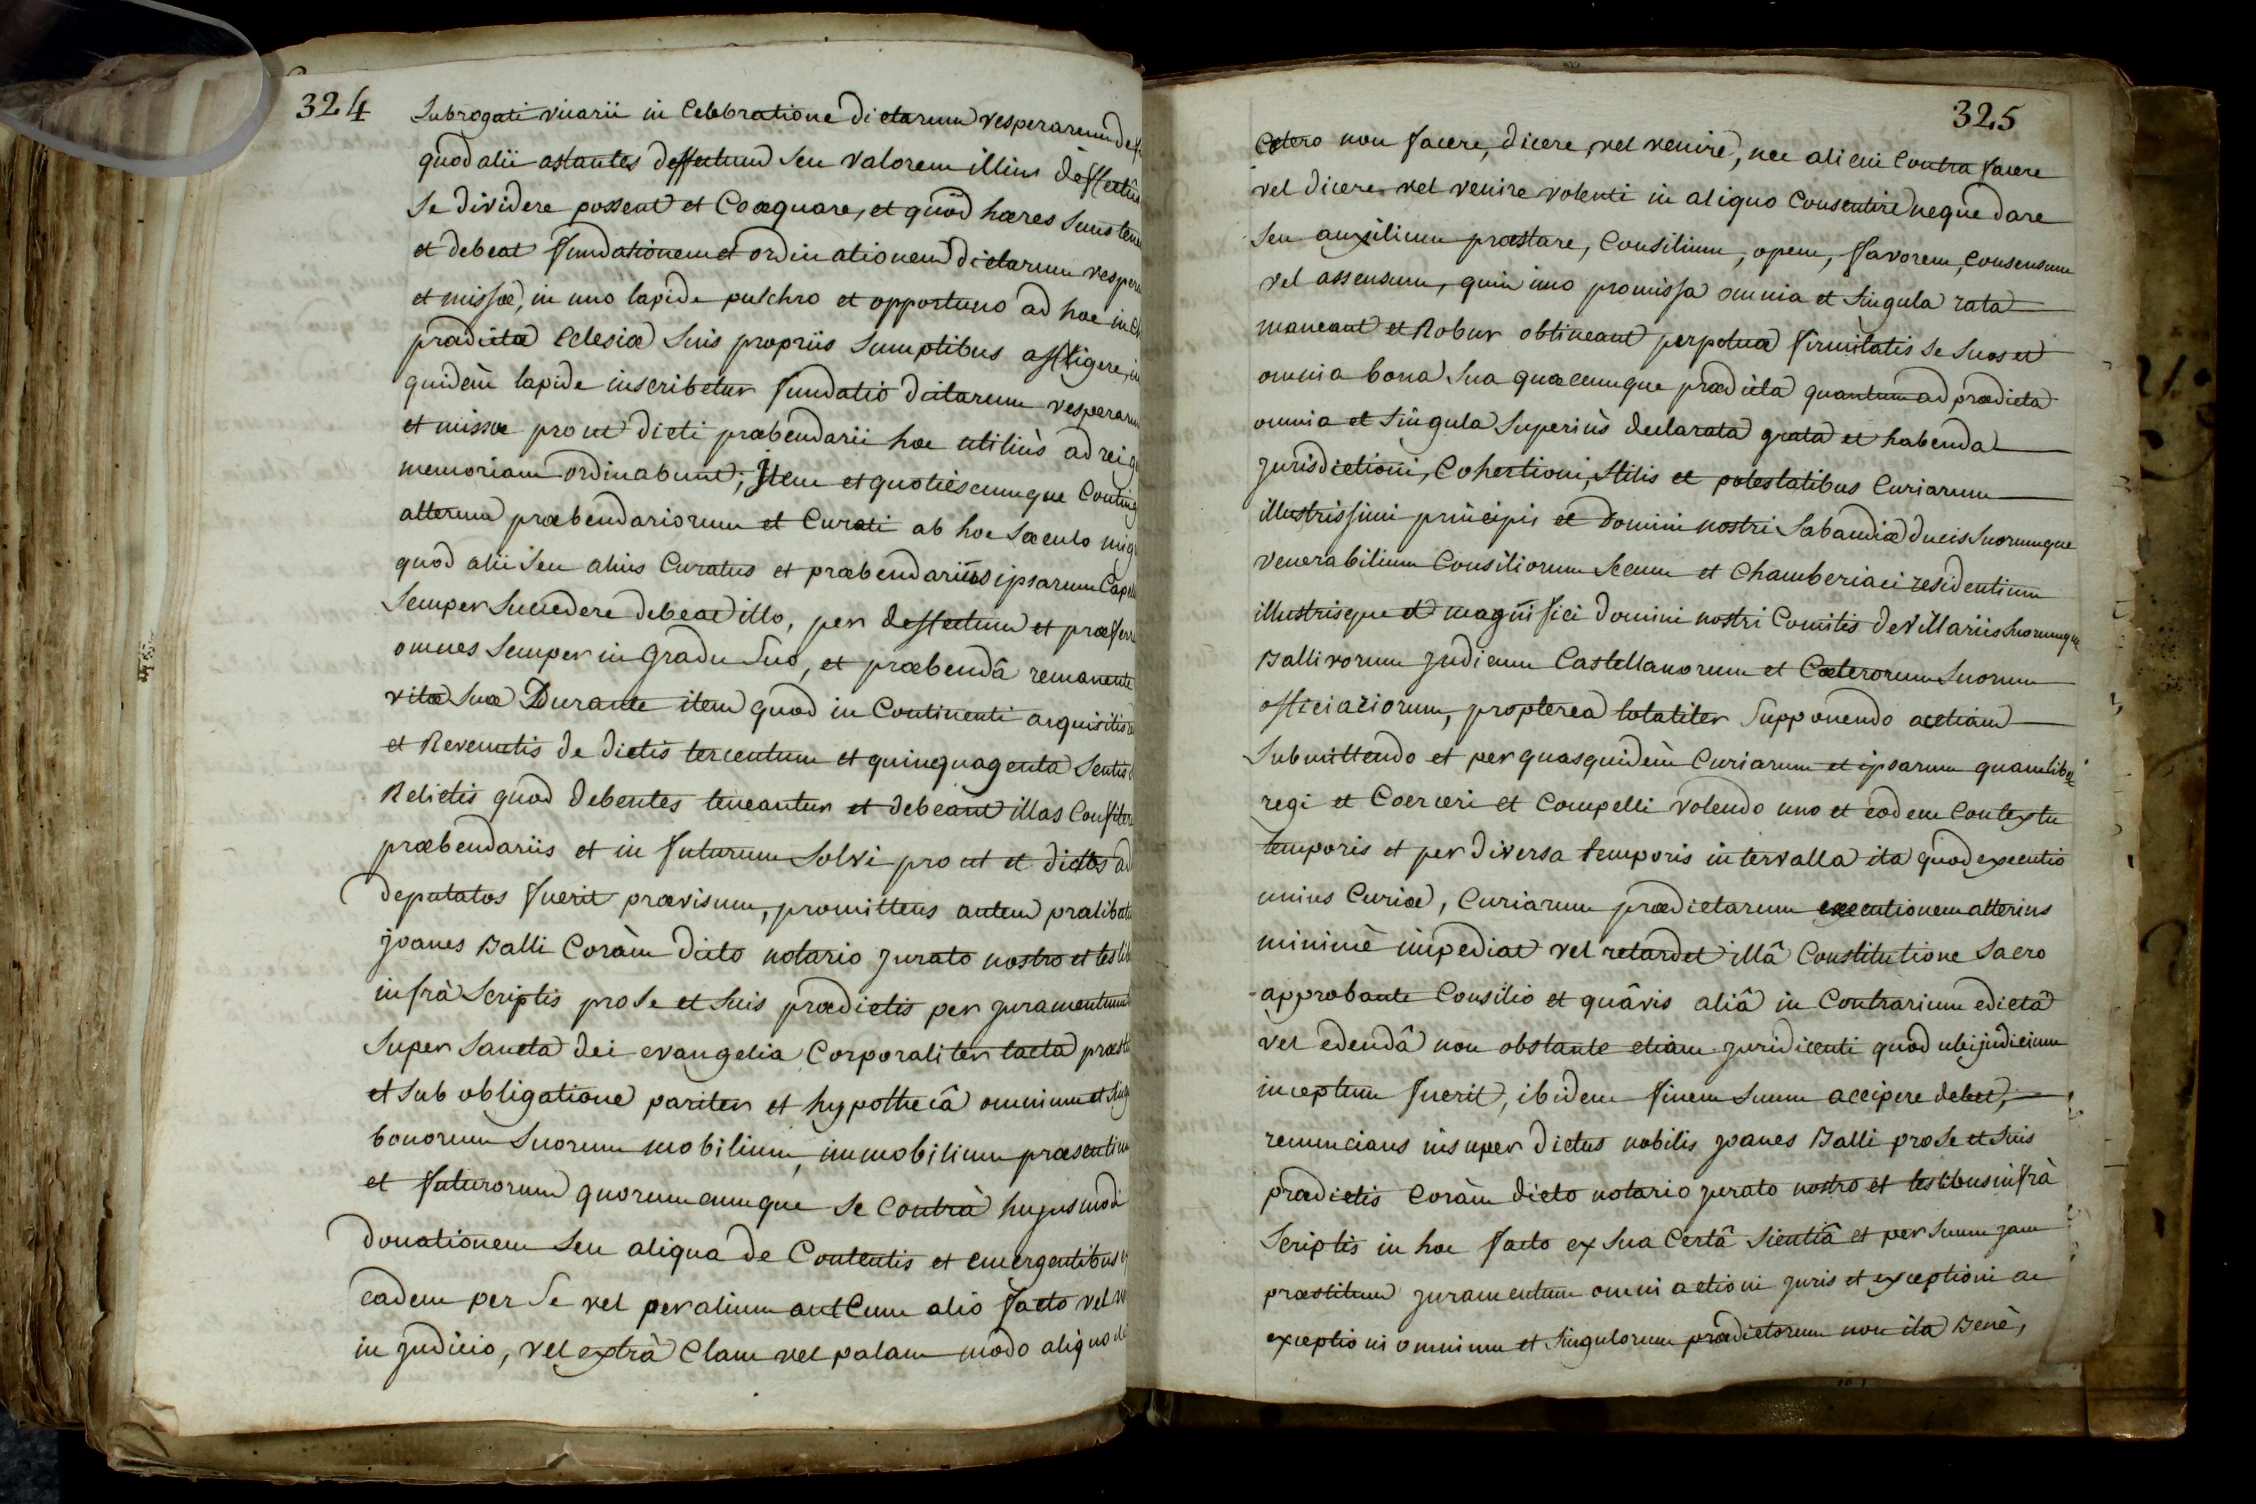 324
Subrogati vicarii in Celebratione dictarum vesperarum
quod alii astantes deffectum seu valorem illius deffectûs
Se dividere possent et Coæquare, et quòd hæres suus
et debeat fundationem et ordinationem dictarum
et missæ, in uno lapide pulchro et opportuno ad hoc in
prædicta Eclesia Suis propriis Sumptibus affligere, in
quidem lapide inscribetur fundatio dictarum
et missæ prout dicti præbendarii hoc utiliùs ad rei
memoriam ordinabunt; Item et quotiescumque
alterum præbendariorum et Curati ab hoc Sæculo
quod alii seu alius Curatus et præbendarius ipsarum
Semper Succedere debeat illo, per deffectum et
omnes Semper in gradu Suo, et præbendâ remanente
vitæ suæ Durante item quod in Continenti
et Revenutis de dictis tercentum et quinquagenta
Relictis quod debentes teneantur et debeant illas
præbendariis et in futurum Solvi prout et dictos
deputatos fuerit prævisum, promittens autem
joanes Balli Coràm dicto notario jurato nostro et
infrà Scriptis pro Se et Suis prædictis per juramentum
Super Sancta dei evangelia Corporaliter tacta
et Sub obligatione pariter et hypothecâ omnium et
bonorum Suorum mobilium, immobilium præsentium
et futurorum quorumcumque se Contrà hujusmodi
donationem Seu aliqua de Contentis et emergentibus
eadem per Se vel per alium aut Cum alio facto vel
in judicio, vel extrà Clam vel palam modo aliquo
325
Cætero non facere, dicere, vel venire, nec alicui Contra facere
vel dicere vel venire volenti in aliquo Consentire neque dare
Seu auxilium præstare, Consilium, opem, favorem, Consensum
vel assensum, quin imo promissa omnia et Singula rata
maneant et Robur obtineant perpetuæ firmitatis Se Suos et
omnia bona Sua quæcumque prædicta quantum ad prædicta
omnia et Singula Superiùs declarata grata et habenda
jurisdictioni, Cohertioni, stilis et potestatibus Curiarum
illustrissimi principis et Domini nostri Sabaudiæ ducis Suorumque
venerabilium Consiliorum Secum et Chamberiaci residentium
illustrisque et magnifici domini nostri Comitis de Villariis Suorumque
Ballivorum judicum Castellanorum et Cæterorum Suorum
officiariorum, propterea totaliter Supponendo acetiam
Submittendo et per quasquidem Curiarum et ipsarum quamlibet
regi et Coerceri et Compelli volendo uno et eodem Contextu
temporis et per diversa temporis intervalla ita quod executio
unius Curiæ, Curiarum prædictarum executionem alterius
minimè impediat vel retardet illâ Constitutione Sacro
approbante Consilio et quâvis aliâ in Contrarium edictâ
vel edendâ non obstante etiam juri dicenti quod ubi judicium
inceptum fuerit, ibidem finem Suum accipere debet;
renuncians insuper dictus nobilis joanes Balli pro Se et Suis
prædictis Coràm dicto notario jurato nostro et testibus infrà
Scriptis in hoc facto ex Sua Certâ Sientiâ et per Suum jam
præstitum juramentum omni actioni juris et exceptioni ac
exceptioni omnium et Singulorum prædictorum non ita Benè,